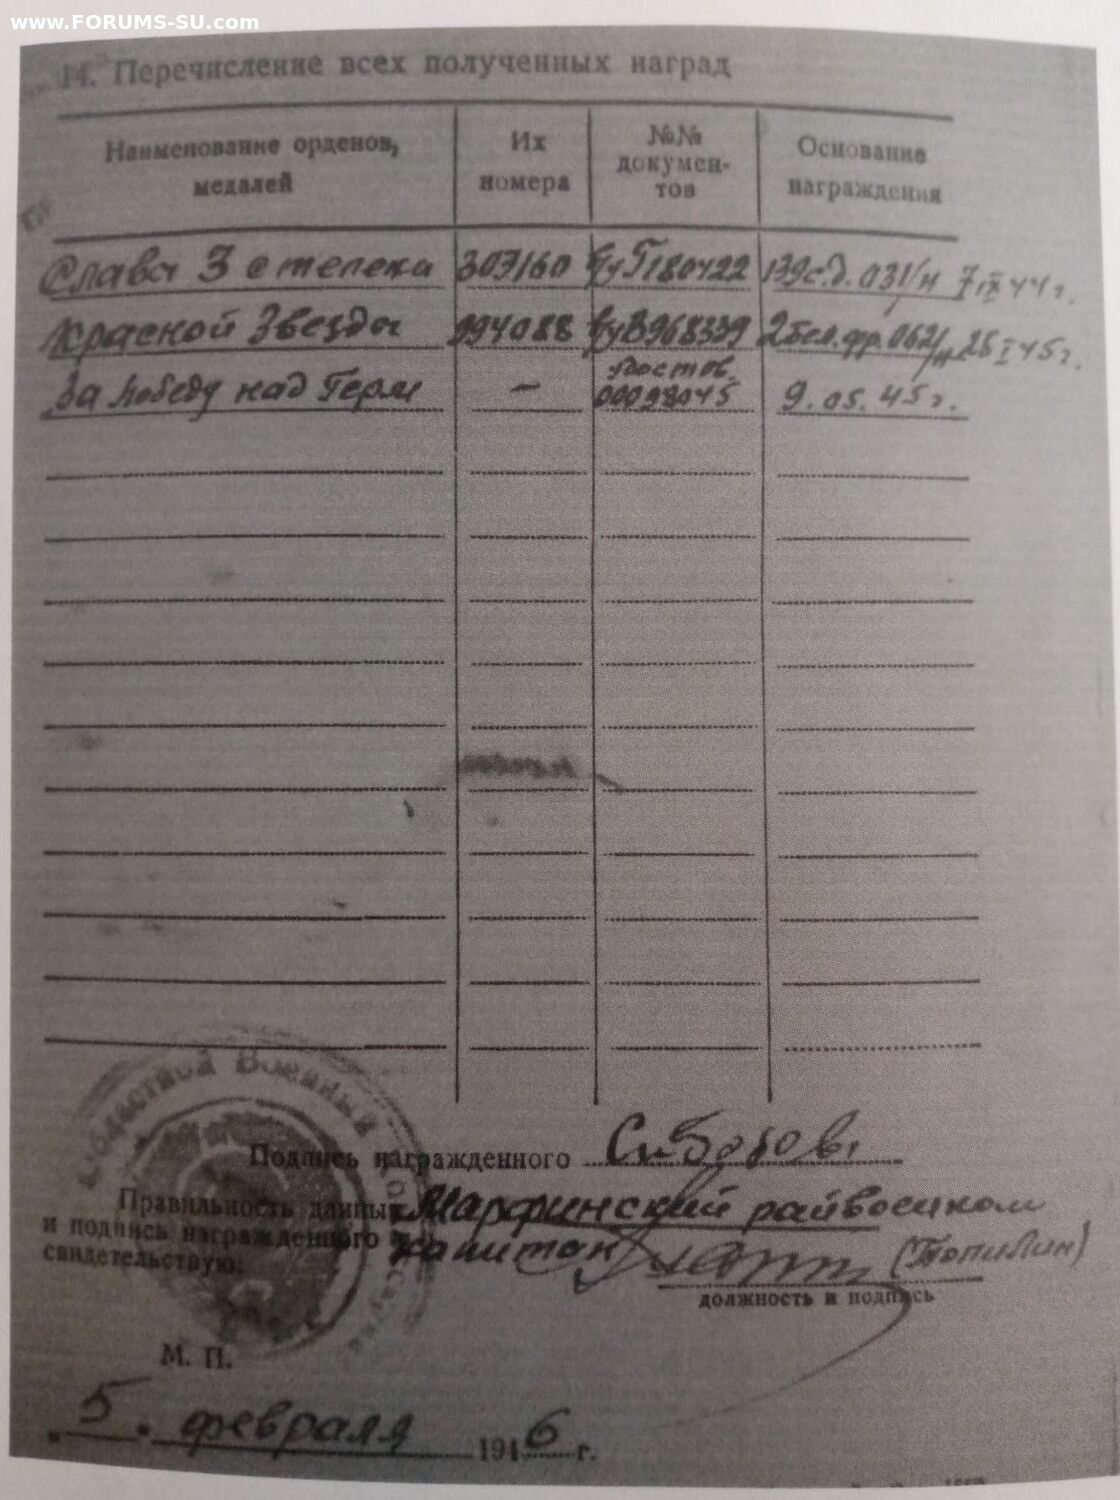 www.FORUMS-SU.com
14. Перечисление всех полученных наград
Наименование орденов, медалей
Их номера
№№ докумен-тов
Основание награждения
Слава 3 степени 307160 Г180422 139с.д. 031/н 7.IX 44 г.
Красной Звезды 994088 В968339 2 Бел. фр. 062/н 25 I 45 г.
удостов.
За победу над Герм — 0098045 9.05.45 г.
Подпись награжденного
Правильность данных Марфинский райвоенком
и подпись награжденного капитан (Топилин)
свидетельствую:
должность и подпись
М. П.
5 февраля 1946 г.